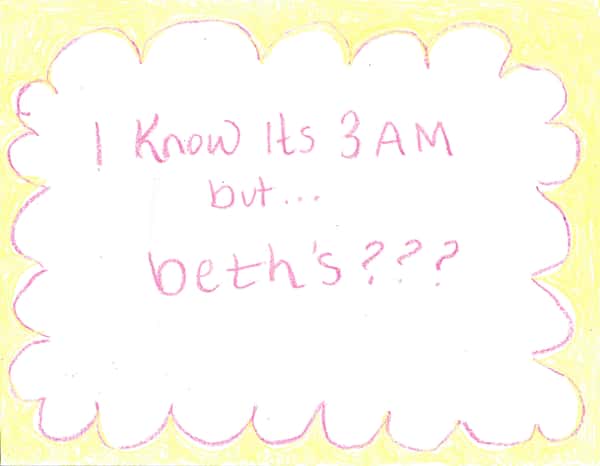 I Know Its 3AM
but...
beth's???